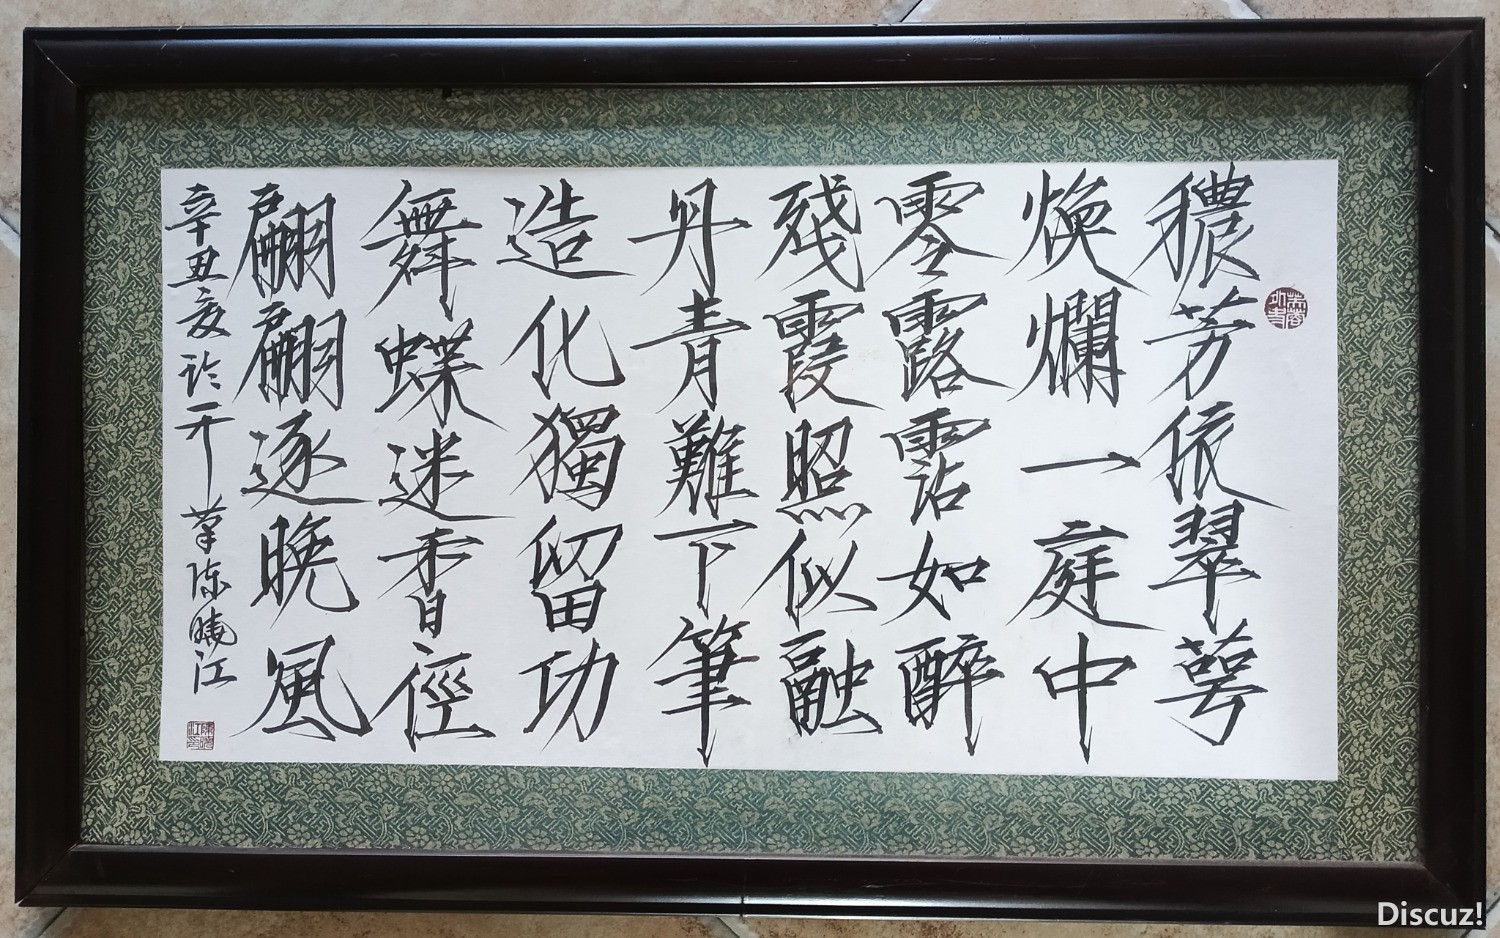 穠芳依翠萼
煥爛一庭中
零露霑如醉
殘霞照似融
丹青難下筆
造化獨留功
舞蝶迷香徑
翩翩逐晚風
辛丑夏 陈曉江
Discuz!